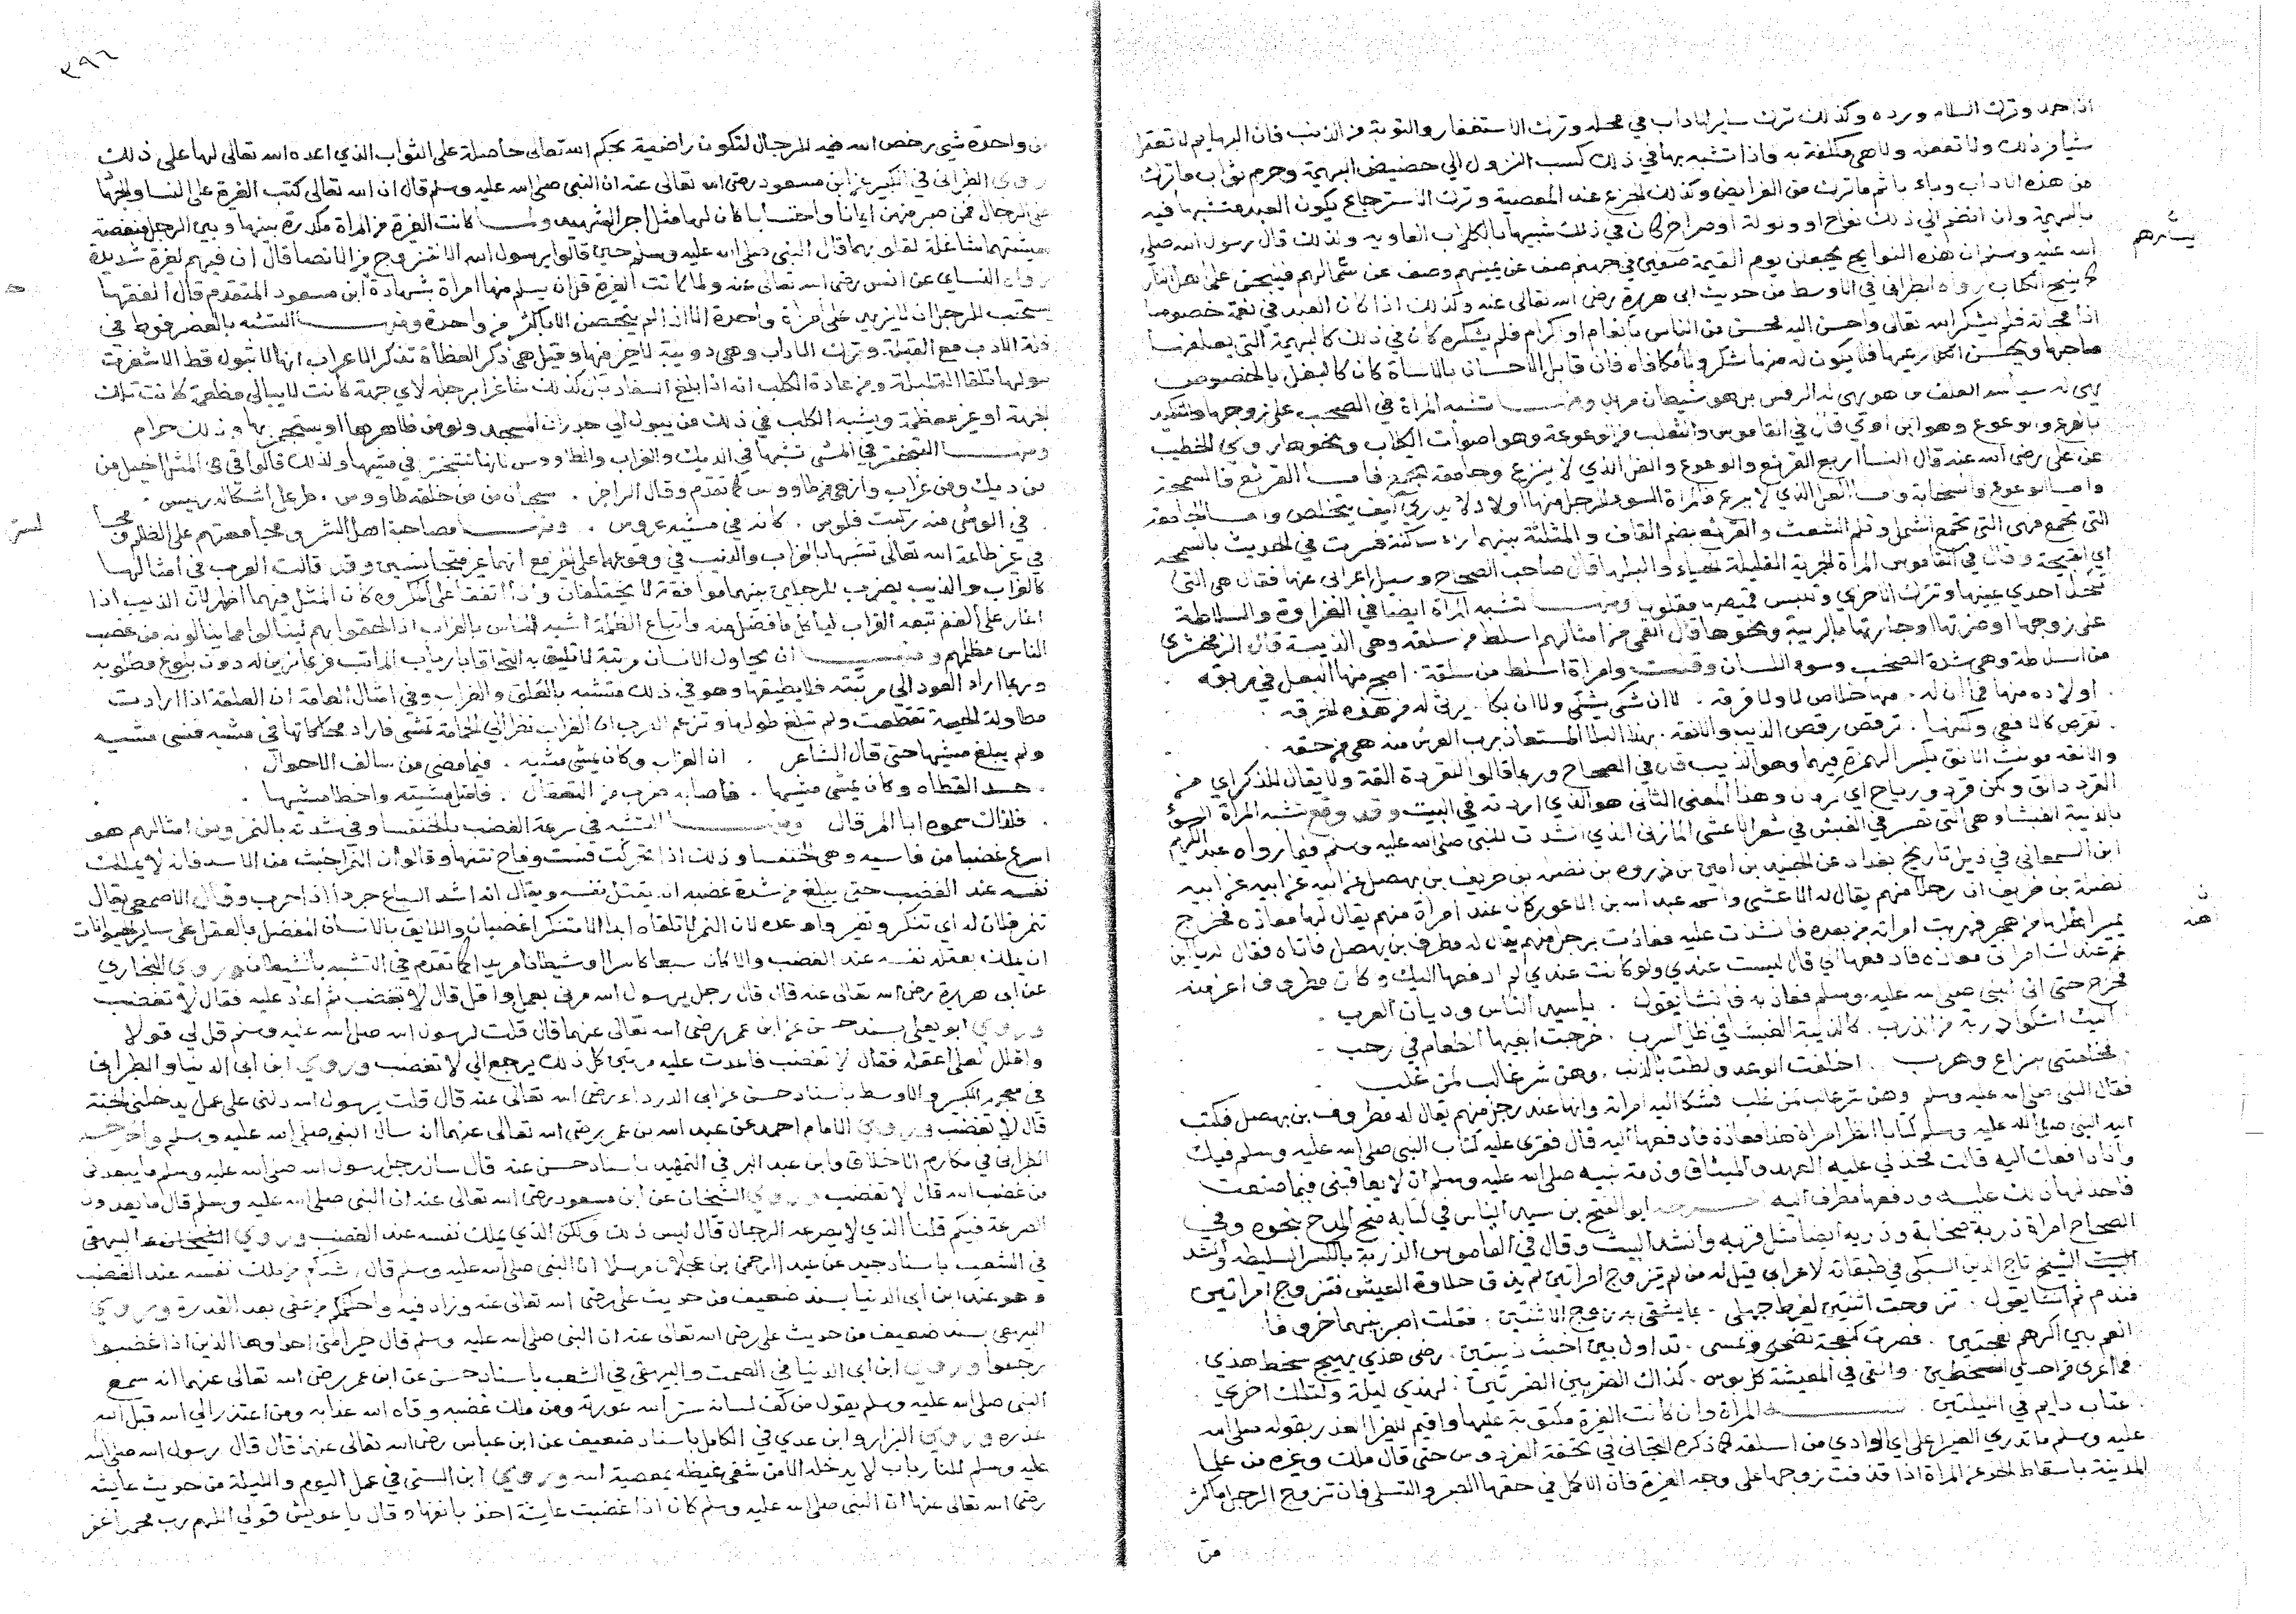 اذا حمد وترك السلام ورده وكذلك ترك ساير الاداب في محله وترك الاستغفار والتوبة من الذنب فان البهايم لا تعقل
شيا من ذلك ولا تفعله ولا هي مكلفة به فاذا تشبه بها في ذلك كسب النزول الي حضيض البهيمة وحرم ثواب ما ترك
من هذه الاداب وباء باثم ما ترك من الفرايض وكذلك الجزع عند المعصية وترك الاسترجاع يكون العبد متشبها فيه
بالبهيمة وان انضم الي ذلك نواح او ولولة او صراخ كان في ذلك شبيها بالكلاب العاوية ولذلك قال رسول الله صلى
الله عليه وسلم ان هذه النوايح يجعلن يوم القيمة صفين في جهنم صف عن يمينهم وصف عن شمالهم فينبحن على اهل النار
كما ينبح الكلاب رواه الطبراني في الاوسط من حديث ابي هريرة رضي الله تعالى عنه وكذلك اذا كان العبد في نعمة خصوصا
اذا فجاته فلم يشكر الله تعالى واحسن اليه محسن من الناس بانعام او اكرام فلم يشكره كان في ذلك كالبهيمة التي يعلفها
صاحبها ويحسن اليها فلا يكون له منها شكر ولا مكافاه فان قابل الاحسان بالاساة كان كالبغل بالخصوص
تشبه المراة في الصخب على زوجها
بالقرع والوعوع وهو ابن اوي قال في القاموس والثعلب والوعوعة وهو اصوات الكلاب ونحوها روي الخطيب
عن علي رضي الله عنه قال النسا اربع القرثع والوعوع والغل الذي لا ينزع وجامعة تجمع فاما القرثع فالسمجة
واما الوعوع فالسخابة واما الغل الذي لا ينزع فالمراة السوء للرجل منها اولاد لا يدري كيف يتخلص واما الجامعة
التي تجمع فهي التي تجمع الشمل وتلم الشعث والقرثع بضم القاف والمثلثة بينهما راء ساكنة فسرت في الحديث بالسمجة
اي القبيحة وقال في القاموس المراة الجرية القليلة الحياء والبلها قال صاحب الصحاح وسيل اعرابي عنها فقال هي التي
تكحل احدي عينيها وتترك الاخري وتلبس قميصها مقلوبا ومنها تشبه المراة ايضا في الضراوة والسلاطة
على زوجها او ضرتها او جارتها بالذيبة ونحوها قال القمي من امثالهم اسلط من سلقه وهي الذيبة قال الزمخشري
من السلاطة وهي شدة الصخب وسوء اللسان وامراة اسلط من سلقة . اصبح منها البعل في مربقه
. اولاده منها فما ان له . منها خلاص لا ولا فرقه . لا ان شكى يشكى ولا ان بكا . يرثى له من هذه الحرقه .
. تقرص كالافعي ولكنها . ترقص رقص الذيب والالقه .
والالقه مونث الالق بكسر الهمزة فيهما وهو الذيب قال في الصحاح وربما قالوا للقردة القة ولا يقال للذكر اي من
القرد والق ولكن قرد ورباح اي كرمان وهذا المعنى الثاني هو الذي اردته في البيت وقد وقع تشبه المراة السوء
بالذيبة الغبشا وهي انثى في شعر الاعشى المازني الذي انشدت للنبي صلى الله عليه وسلم فيما رواه عبد الكريم
ابن السمعاني في ذيل تاريخ بغداد عن الجنيد بن امين بن ذروه بن نضلة بن طريف بن بهصل عن ابيه عن ابيه عن ابيه
نضلة بن طريف ان رجلا منهم يقال له الاعشى واسمه عبد الله بن الاعور كان عند امراة منهم يقال لها معاذه فخرج
يمير اهله من هجر فهربت امراته من بعده ناشزت عليه فعاذت برجل منهم يقال له مطرف بن بهصل فاتاه فقال له يا ابن
عم عندك امراتي معاذة فادفعها الي قال ليست عندي ولو كانت عندي لم ادفعها اليك وكان مطرف اعز منه
فخرج حتى اتى النبي صلى الله عليه وسلم فعاذ به فانشا يقول . يا سيد الناس وديان العرب .
اليك اشكوا ذربة من الذرب . كالذيبة الغبشا في ظل السرب . خرجت ابغيها الطعام في رجب .
. فخلفتني بنزاع وهرب . اخلفت الوعد ولطت بالذنب . وهن شر غالب لمن غلب .
فقال النبي صلى الله عليه وسلم وهن شر غالب لمن غلب فشكا اليه امراته وانها عند رجل منهم يقال له مطرف بن بهصل فكتب
اليه النبي صلى الله عليه وسلم كتابا انظر امراة هذا معاذة فادفعها اليه قال فقرئ عليه كتاب النبي صلى الله عليه وسلم فيك
وانا دافعك اليه قالت فخذ لي عليه العهد والميثاق وذمة نبيه صلى الله عليه وسلم ان لا يعاقبني فيما صنعت
فاخذ لها ذلك عليه ودفعها مطرف اليه ابو الفتح بن سيد الناس في كتابه منح المدح بنحوه وفي
الصحاح امراة ذربة صخابة وذربه ايضا مثل قربه وانشد البيت وقال في القاموس الذربة بالكسر السليطه وانشد
البيت الشيخ تاج الدين السبكي في طبقاته لاعرابي قيل له من لم يتزوج امراتين لم يذق حلاوة العيش فتزوج امراتين
فندم ثم انشا يقول . تزوجت اثنتين لفرط جهلي . بما يشقى به زوج الاثنتين . فقلت اصير بينهما خروفا .
انعم بين اكرم نعجتين . فصرت كنعجة تضحي وتمسي . تداول بين اخبث ذيبتين . رضى هذي يهيج سخط هذي .
. فما اعرى من احدي السخطتين . والقى في المعيشة كل بوس . كذاك الضر بين الضرتين . لهذي ليلة ولتلك اخري .
. عتاب دايم في الليلتين . المراة وان كانت الغيرة مكتوبة عليها واقيم للغيرا العذر بقوله صلى الله
عليه وسلم ما تدري الغيرا اعلى الوادي من اسفله كما ذكره التجاني في تحفة العروس حتى قال ملك وغيره من علما
المدينة باسقاط الحد عن المراة اذا قذفت زوجها على وجه الغيرة فان الاكمل في حقها الصبر والتسلي فان تزوج الرجل اكثر
من
٣٩٦
من واحدة شي رخص الله فيه للرجال لتكون راضية بحكم الله تعالى حاصلة على الثواب الذي اعده الله تعالى لها على ذلك
روي الطبراني في الكبير عن ابن مسعود رضي الله تعالى عنه ان النبي صلى الله عليه وسلم قال ان الله تعالى كتب الغيرة على النسا والجهاد
على الرجال فمن صبر منهن ايمانا واحتسابا كان لها مثل اجر الشهيد ولما كانت الغيرة من المراة مكدرة بينها وبين الرجل منغصة
معيشتهما شاغلة لقلوبهما قال النبي صلى الله عليه وسلم حين قالوا يرسول الله الا تتزوج من الانصار قال ان فيهم لغيرة شديدة
رواه النساي عن انس رضي الله تعالى عنه ولما كانت الغيرة قل ان يسلم منها امراة بشهادة ابن مسعود المتقدم قال الفقها
يستحب للرجل ان لا يزيد على امراة واحدة الا اذا لم يتحصن الا باكثر من واحدة ومنها التشبه بالعضرفوط في
قلة الادب مع القبلة وترك الاداب وهي دويبة لا خير فيها وقيل هي ذكر العظاة تذكر الاعراب انها لا تبول قط الا شغرت
ببولها تلقا القبلة ومن عادة الكلب انه اذا بلغ السفاد بال كذلك شاغرا برجله لاي جهة كانت لا يبالي معظمة كانت تلك
الجهة او غير معظمة ويشبه الكلب في ذلك من يبول الي جدران المسجد ولو من ظاهرها او يستجمر بها وذلك حرام
ومنها التبختر في المشي تشبها في الديك والغراب والطاووس فانها تتبختر في مشيها ولذلك قالوا في المثل اخيل من
من ديك ومن غراب وازهي من طاووس كما تقدم وقال الراجز . سبحان من من خلقه طاووس . طير على اشكاله رييس .
. في الوشي منه ركبت فلوس . كانه في مشيه عروس . ومنها مصاحبة اهل الشر ومجامعتهم على الظلم
في غير طاعة الله تعالى تشبها بالغراب والذيب في وقوعهما
كالغراب والذيب يضرب للرجلين بينهما موافقة لا يختلفان واذا اتفقا على المكروه كان المثل فيهما اظهر لان الذيب اذا
اغار على الغنم تبعه الغراب لياكل ما فضل منه واتباع الظلمة اشبه الناس بالغراب اذا لحقوا بهم لينالوا مما ينالونه من غصب
الناس مظلمهم ومنها ان يحاول الانسان مرتبة لا تليق به
وربما اراد العود الي مرتبته فلا يطيقها وهو في ذلك متشبه بالعلق والغراب وفي امثال العامة ان العلقة اذا ارادت
مطاولة الحية تقطعت ولم تبلغ طولها وتزعم العرب ان الغراب نظر الي الحمامة تمشي فاراد محاكاتها في مشيه فنسي مشيه
ولم يبلغ مشيها حتى قال الشاعر . ان الغراب وكان يمشي مشيه . فيما مضى من سالف الاحوال .
. حسد القطاه وكان يمشي مشيها . فاصابه ضرب من العقال . فاضل مشيته واخطا مشيها .
. فلذاك سموه ابا المرقال ومنها التشبه في سرعة الغضب بالخنفسا وفي شدته بالنمر ومن امثالهم هو
اسرع غضبا من فاسيه وهي الخنفسا وذلك اذا تحركت فست وفاح نتنها وقالوا ان النمر اخبث من الاسد فانه لا يملك
نفسه عند الغضب حتى يبلغ من شدة غضبه ان يقتل نفسه ويقال انه اشد السباع حردا اذا حرب وقال الاصمعي يقال
تنمر فلان له اي تنكر وتغير واوعده لان النمر لا تلقاه ابدا الا متنكرا غضبان واللايق بالانسان المفضل بالعقل على ساير الحيوانات
ان يملك بعقله نفسه عند الغضب والا كان سبعا كاسرا او شيطانا مريدا كما تقدم في التشبه بالشيطان وروي البخاري
عن ابي هريرة رضي الله تعالى عنه قال قال رجل يرسول الله مرني بعمل واقل قال لا تغضب ثم اعاد عليه فقال لا تغضب
وروي ابو يعلى بسند حسن عن ابن عمر رضي الله تعالى عنهما قال قلت لرسول الله صلى الله عليه وسلم قل لي قولا
واقلل لعلي اعقله فقال لا تغضب فاعدت عليه مرتين كل ذلك يرجع الي لا تغضب وروي ابن ابي الدنيا والطبراني
في معجمه الكبير والاوسط باسناد حسن عن ابي الدرداء رضي الله تعالى عنه قال قلت يرسول الله دلني على عمل يدخلني الجنة
قال لا تغضب وروي الامام احمد عن عبد الله بن عمر رضي الله تعالى عنهما انه سال النبي صلى الله عليه وسلم
الطبراني في مكارم الاخلاق وابن عبد البر في التمهيد باسناد حسن عنه قال سال رجل رسول الله صلى الله عليه وسلم ما يبعدني
من غضب الله قال لا تغضب وروي الشيخان عن ابن مسعود رضي الله تعالى عنه ان النبي صلى الله عليه وسلم قال ما تعدون
الصرعة فيكم قلنا الذي لا يصرعه الرجال قال ليس ذلك ولكن الذي يملك نفسه عند الغضب وروي البيهقي
في الشعب باسناد جيد عن عبد الرحمن بن عجلان مرسلا ان النبي صلى الله عليه وسلم قال اشدكم من ملك نفسه عند الغضب
وهو عند ابن ابي الدنيا بسند ضعيف من حديث علي رضي الله تعالى عنه وزاد فيه واحلمكم من عفى بعد القدرة وروي
البيهقي بسند ضعيف من حديث علي رضي الله تعالى عنه ان النبي صلى الله عليه وسلم قال خير امتي احداوها الذين اذا غضبوا
رجعوا وروي ابن ابي الدنيا في الصمت والبيهقي في الشعب باسناد حسن عن ابن عمر رضي الله تعالى عنهما انه سمع
النبي صلى الله عليه وسلم يقول من كف لسانه ستر الله عورته ومن ملك غضبه وقاه الله عذابه ومن اعتذر الي الله قبل الله
عذره وروي البزار وابن عدي في الكامل باسناد ضعيف عن ابن عباس رضي الله تعالى عنهما قال قال رسول الله صلى الله
عليه وسلم للنار باب لا يدخله الا من شفى غيظه بمعصية الله وروي ابن السني في عمل اليوم والليلة من حديث عايشه
رضي الله تعالى عنها ان النبي صلى الله عليه وسلم كان اذا غضبت عايشة اخذ بانفها وقال يا عويش قولي اللهم رب محمد اغفر